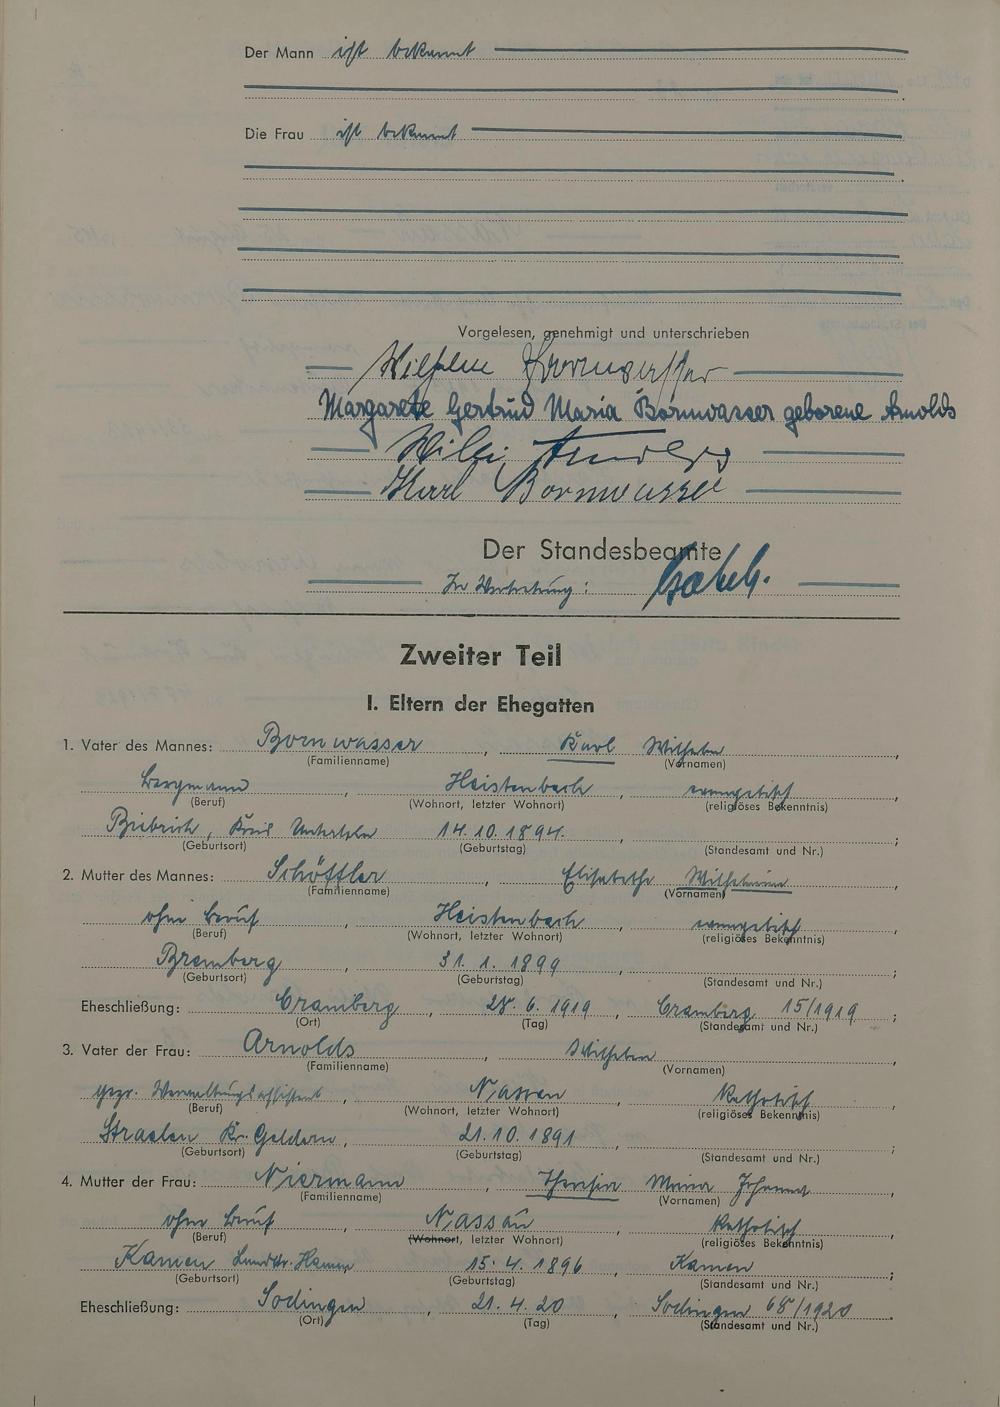 Der Mann ist bekannt
Die Frau ist bekannt
Vorgelesen, genehmigt und unterschrieben
Wilhelm Bornwasser
Margarete Gertrud Maria Bornwasser geborene Arnolds
Willi
Karl Bornwasser
Der Standesbeamte
In Vertretung:
Zweiter Teil
I. Eltern der Ehegatten
1. Vater des Mannes: Bornwasser, Karl Wilhelm,
(Familienname) (Vornamen)
Bergmann, Heistenbach, evangelisch,
(Beruf) (Wohnort, letzter Wohnort) (religiöses Bekenntnis)
Biebrich, Kreis Unterlahn 14.10.1894. ;
(Geburtsort) (Geburtstag) (Standesamt und Nr.)
2. Mutter des Mannes: Schöffler, Elisabethe Wilhelmine,
(Familienname) (Vornamen)
ohne Beruf, Heistenbach, evangelisch,
(Beruf) (Wohnort, letzter Wohnort) (religiöses Bekenntnis)
Bremberg, 31. 1. 1899, ;
(Geburtsort) (Geburtstag) (Standesamt und Nr.)
Eheschließung: Cramberg, 28. 6. 1919, Cramberg 15/1919 ;
(Ort) (Tag) (Standesamt und Nr.)
3. Vater der Frau: Arnolds, Wilhelm,
(Familienname) (Vornamen)
Verwaltungsassistent, Nassau, katholisch,
(Beruf) (Wohnort, letzter Wohnort) (religiöses Bekenntnis)
Straelen Kr. Geldern, 21.10.1891, ;
(Geburtsort) (Geburtstag) (Standesamt und Nr.)
4. Mutter der Frau: Niermann, Maria Johanna,
(Familienname) (Vornamen)
ohne Beruf, Nassau, katholisch,
(Beruf) (Wohnort, letzter Wohnort) (religiöses Bekenntnis)
Kamen, 15. 4. 1896, Kamen ;
(Geburtsort) (Geburtstag) (Standesamt und Nr.)
Eheschließung: Sodingen, 21. 4. 20, Sodingen 68/1920
(Ort) (Tag) (Standesamt und Nr.)